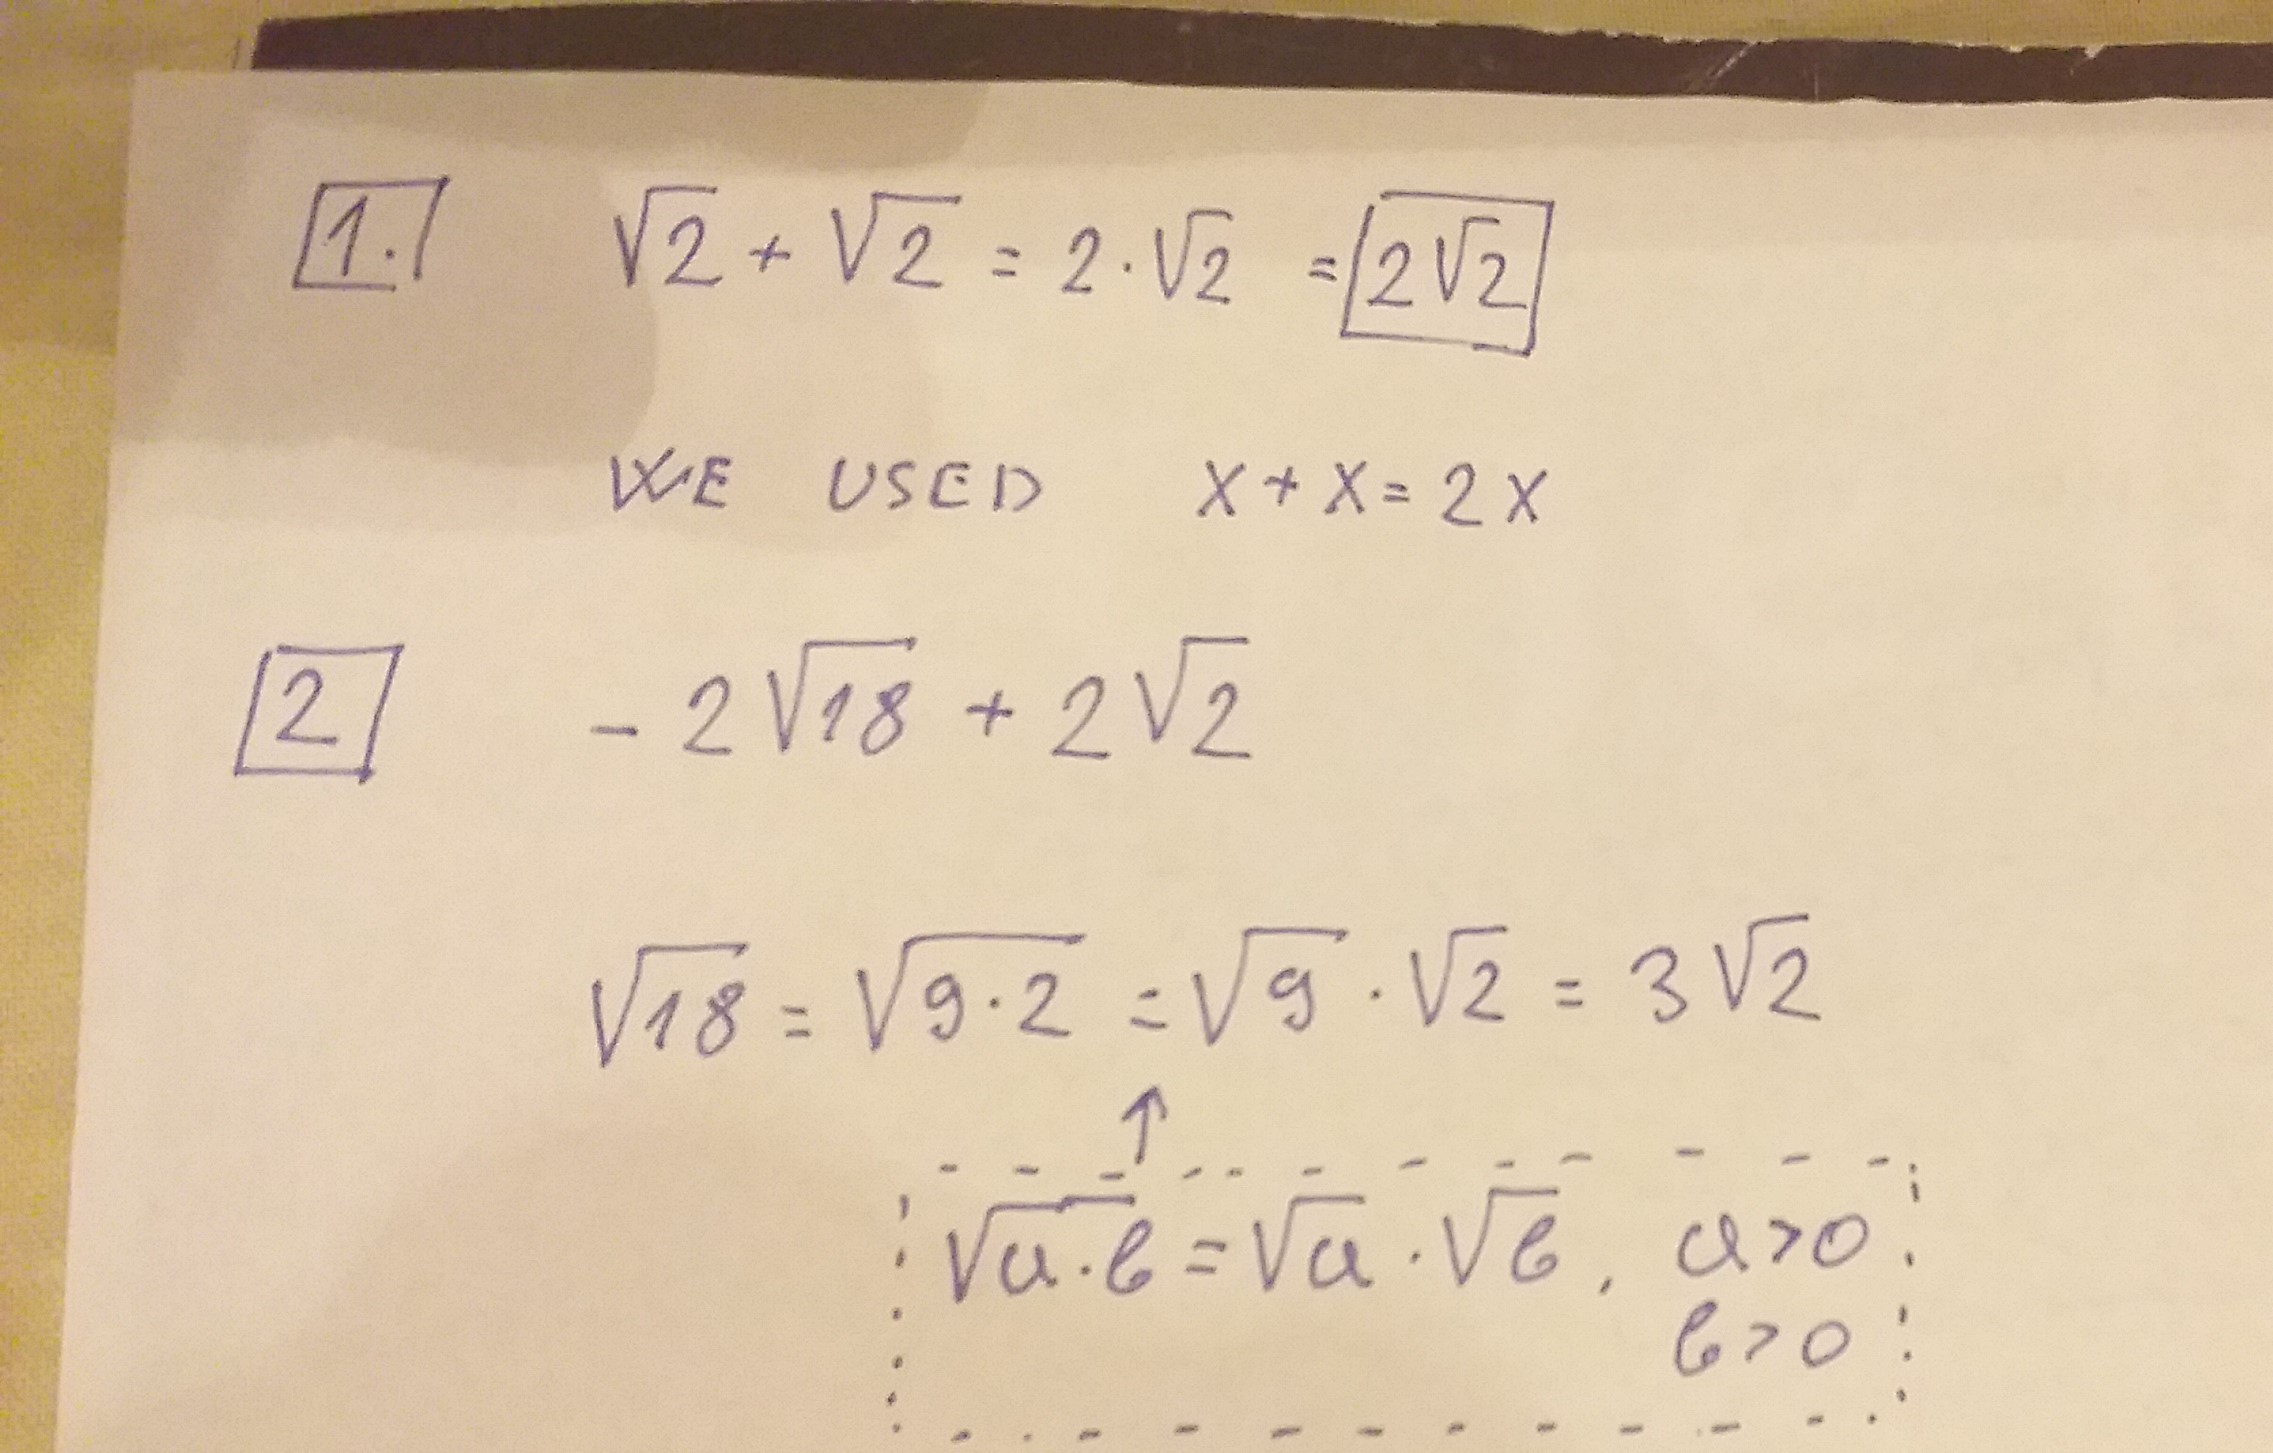 1. √2 + √2 = 2·√2 = 2√2
WE USED x + x = 2x
2 - 2√18 + 2√2
√18 = √9·2 = √9 · √2 = 3√2
↑
√a·b = √a · √b, a>0
b>0